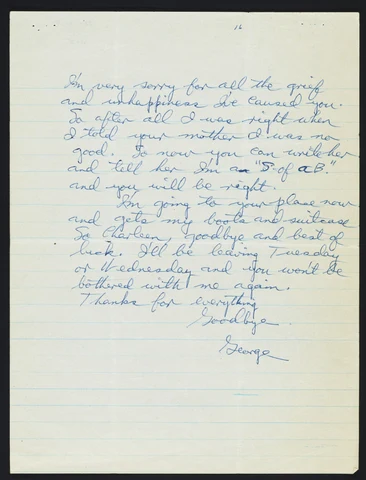 16
I'm very sorry for all the grief
and unhappiness I've caused you.
So after all I was right when
I told your mother I was no
good. So now you can write her
and tell her I'm a "S of a B."
and you will be right.
I'm going to your place now
and gets my boots and suitcase
So Charleen, goodbye and best of
luck. I'll be leaving Tuesday
or Wednesday and you won't be
bothered with me again.
Thanks for everything
Goodbye.
George